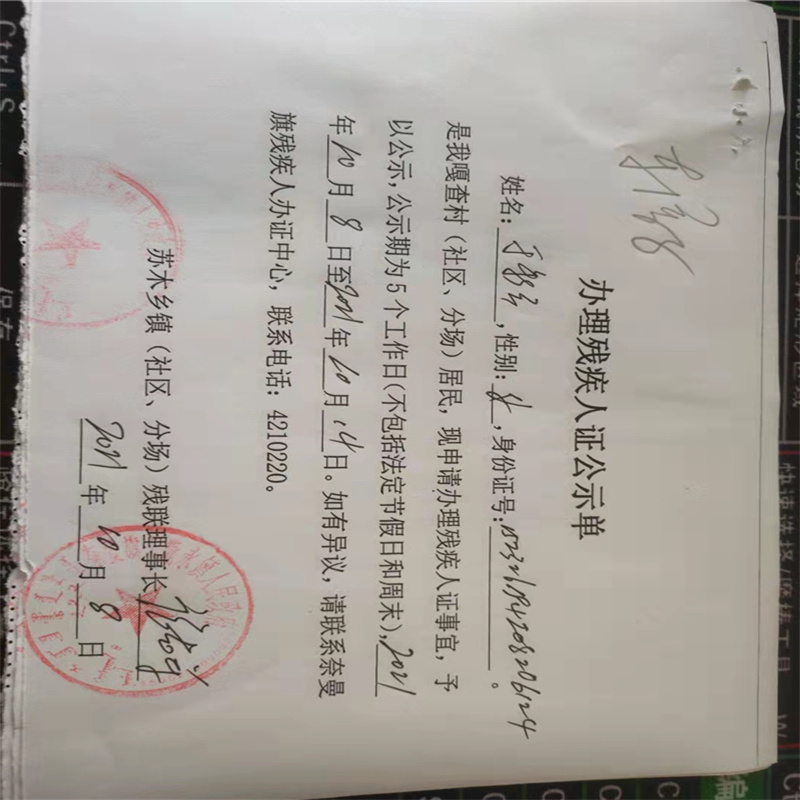 办理残疾人证公示单
姓名：,性别：女,身份证号：
是我嘎查村（社区、分场）居民，现申请办理残疾人证事宜，予
以公示，公示期为5个工作日（不包括法定节假日和周末），2021
年10月8日至2021年10月14日。如有异议，请联系奈曼
旗残疾人办证中心，联系电话：4210220。
苏木乡镇（社区、分场）残联理事长
2021年10月8日